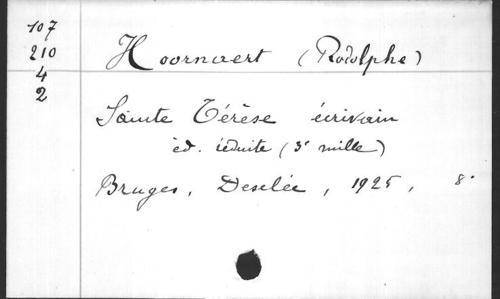 107
210
4
2
Hoornaert (Rodolphe)
Sainte Térèse écrivain
éd. réduite (3e mille)
Bruges, Desclée, 1925, 8°